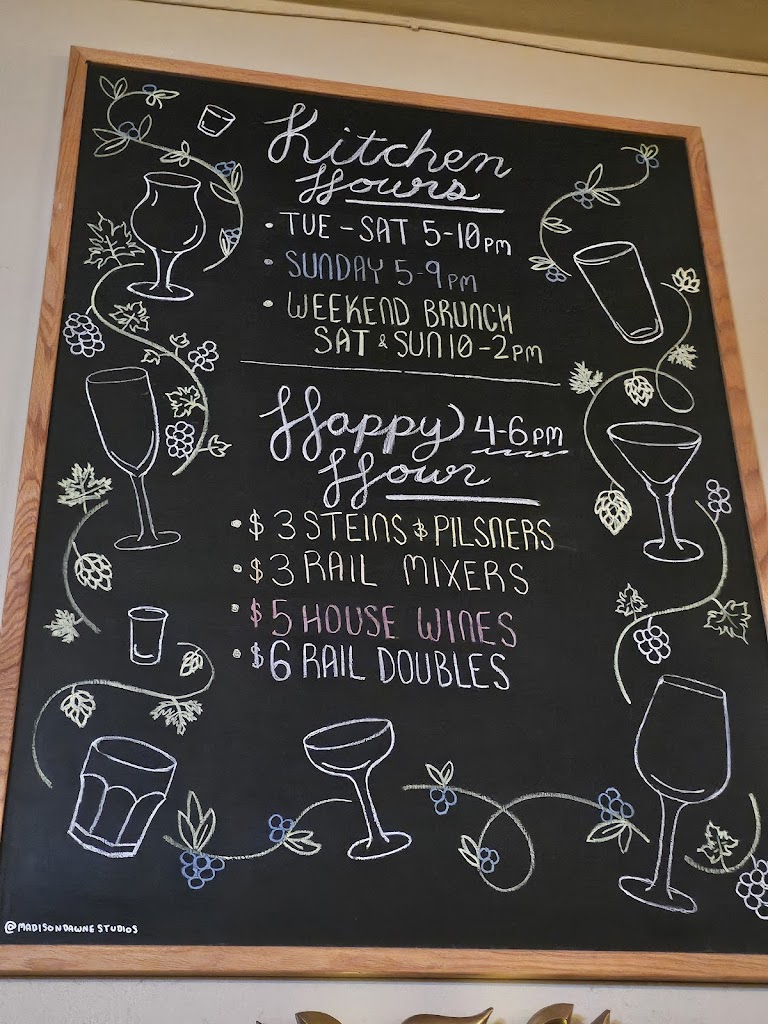 Kitchen
Hours
• TUE - SAT 5-10PM
• SUNDAY 5-9PM
• WEEKEND BRUNCH
SAT & SUN 10-2PM
Happy 4-6PM
Hour
• $3 STEINS & PILSNERS
• $3 RAIL MIXERS
• $5 HOUSE WINES
• $6 RAIL DOUBLES
@MADISONDAWNESTUDIOS